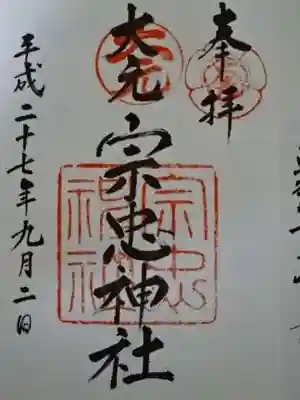 奉拝
大元
宗忠神社
平成二十七年九月二日
宗忠神社